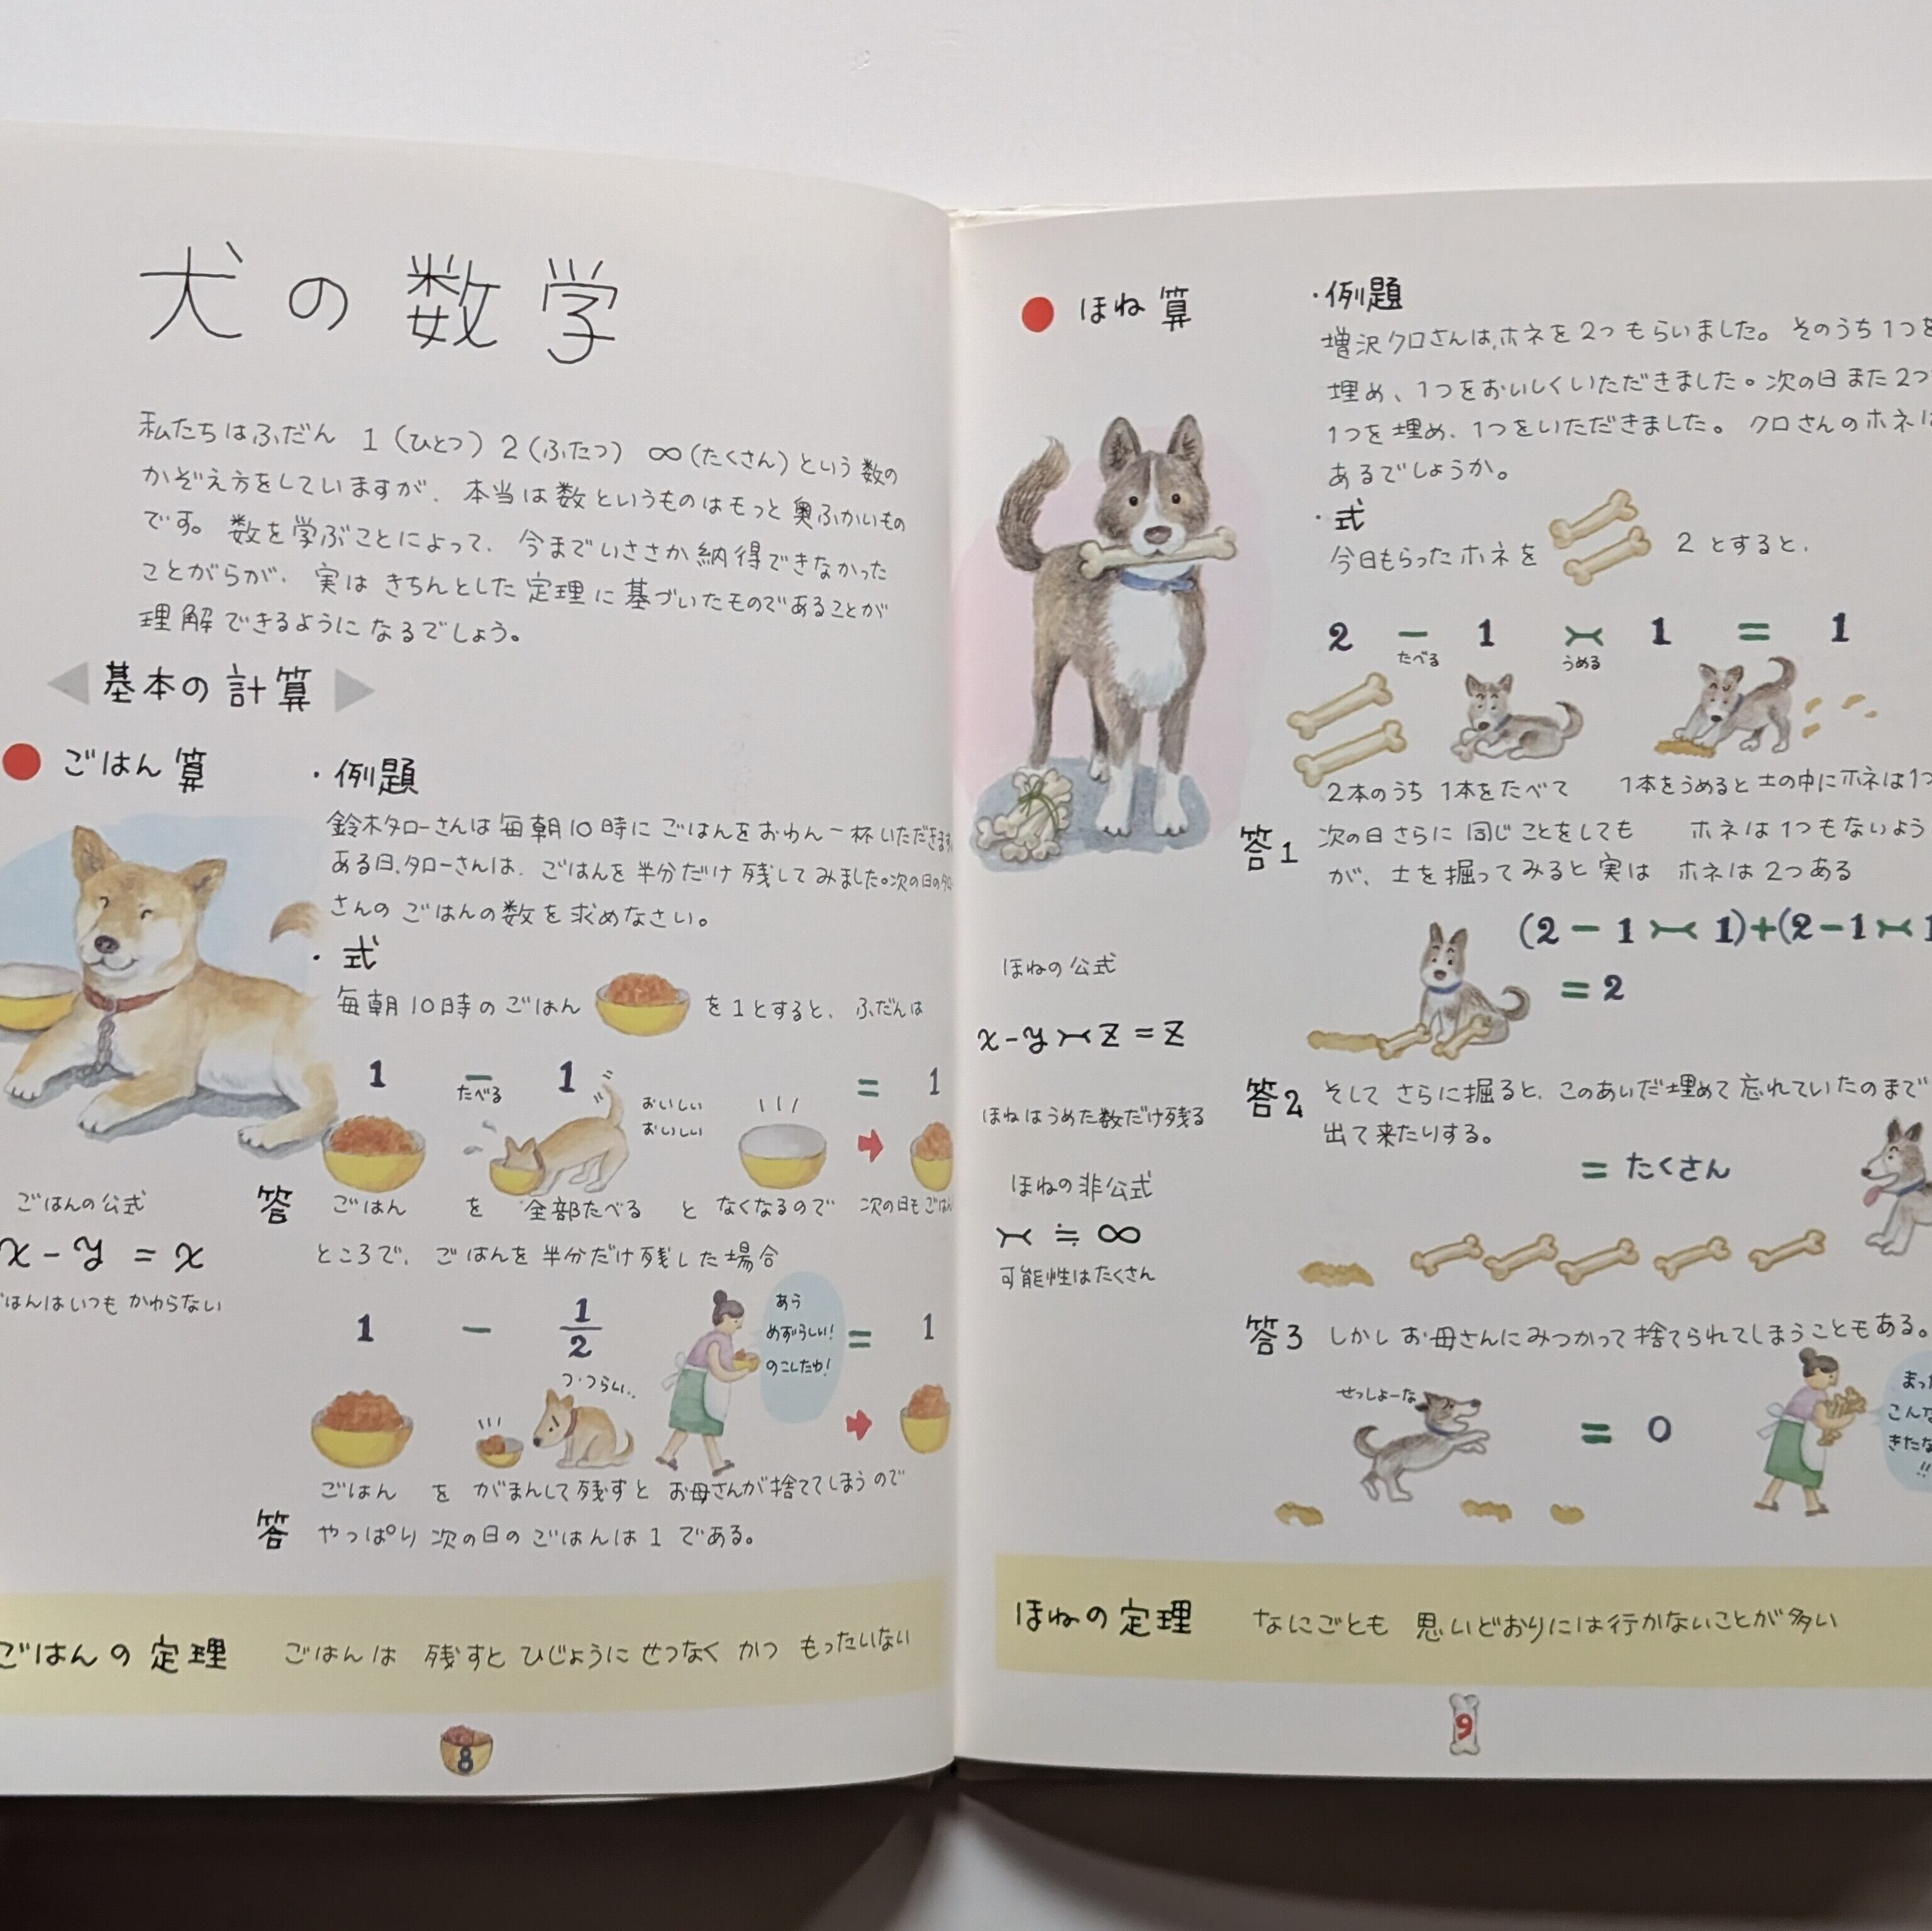 犬の数学
私たちはふだん 1(ひとつ) 2(ふたつ) ∞(たくさん)という数の
かぞえ方をしていますが、本当は数というものはもっと奥ふかいもの
です。数を学ぶことによって、今までいささか納得できなかった
ことがらが、実はきちんとした定理に基づいたものであることが
理解できるようになるでしょう。
基本の計算
ごはん算
・例題
鈴木タローさんは毎朝10時にごはんをおわん一杯いただきます
ある日、タローさんは、ごはんを半分だけ残してみました。次の日のタロー
さんのごはんの数を求めなさい。
・式
毎朝10時のごはん を1とすると、ふだんは
1 − 1 = 1
たべる
おいしい
おいしい
答 ごはん を 全部たべる と なくなるので 次の日もごはん
ごはんの公式
x − y = x
ごはんはいつもかわらない
ところで、ごはんを半分だけ残した場合
1 − 1/2 = 1
あら
めずらしい!
のこしたわ!
つ・つらい..
ごはん を がまんして残すと お母さんが捨ててしまうので
答 やっぱり次の日のごはんは1である。
ごはんの定理 ごはんは 残すと ひじょうに せつなく かつ もったいない
8
ほね算
・例題
増沢クロさんは、ホネを2つもらいました。そのうち1つを
埋め、1つをおいしくいただきました。次の日また2つ
1つを埋め、1つをいただきました。クロさんのホネは
あるでしょうか。
・式
今日もらったホネを 2とすると、
2 − 1 >-< 1 = 1
たべる うめる
2本のうち 1本をたべて 1本をうめると土の中にホネは1つ
答1 次の日さらに同じことをしても ホネは1つもないよう
が、土を掘ってみると実は ホネは2つある
(2 − 1 >-< 1)+(2−1 >-< 1
= 2
ほねの公式
x−y >-< z = z
ほねはうめた数だけ残る
ほねの非公式
>-< ≒ ∞
可能性はたくさん
答2 そしてさらに掘ると、このあいだ埋めて忘れていたのまで
出て来たりする。
= たくさん
答3 しかしお母さんにみつかって捨てられてしまうこともある。
せっしょーな
= 0
まっ
こんな
きたな
!!
ほねの定理 なにごとも 思いどおりには行かないことが多い
9